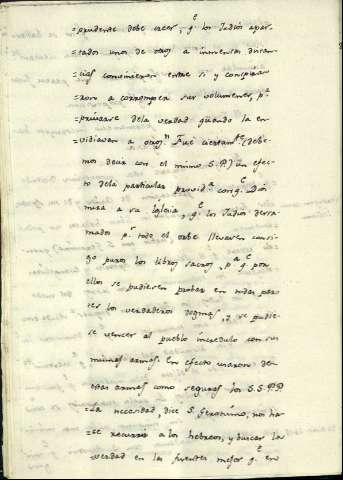 =prudente debe creer, q.e los Judios apar-
=tados unos de otros a inmensas distan-
=cias convinieron entre si y conspira-
=ron a corromper sus volumenes, p.a
=privarse de la verdad quando la en-
=vidiavan a otros." Fué ciertam.te (debe-
mos decir con el mismo S.P.) un efec-
to de la particular provid.a con q.e Dios
mira a su Iglesia, q.e los Judios derra-
mados p.r todo el orbe llevasen consi-
go puros los libros sacros, p.a q.e por
ellos se pudiesen probar en todas par-
tes los verdaderos dogmas, y se pudie-
se vencer al pueblo incredulo con sus
mismas armas. En efecto usaron de
estas armas como seguras los S.S.P.P.
=La necesidad, dice S. Geronimo, nos ha-
=ce recurrir a los hebreos, y buscar la
=verdad en las fuentes mejor q.e en